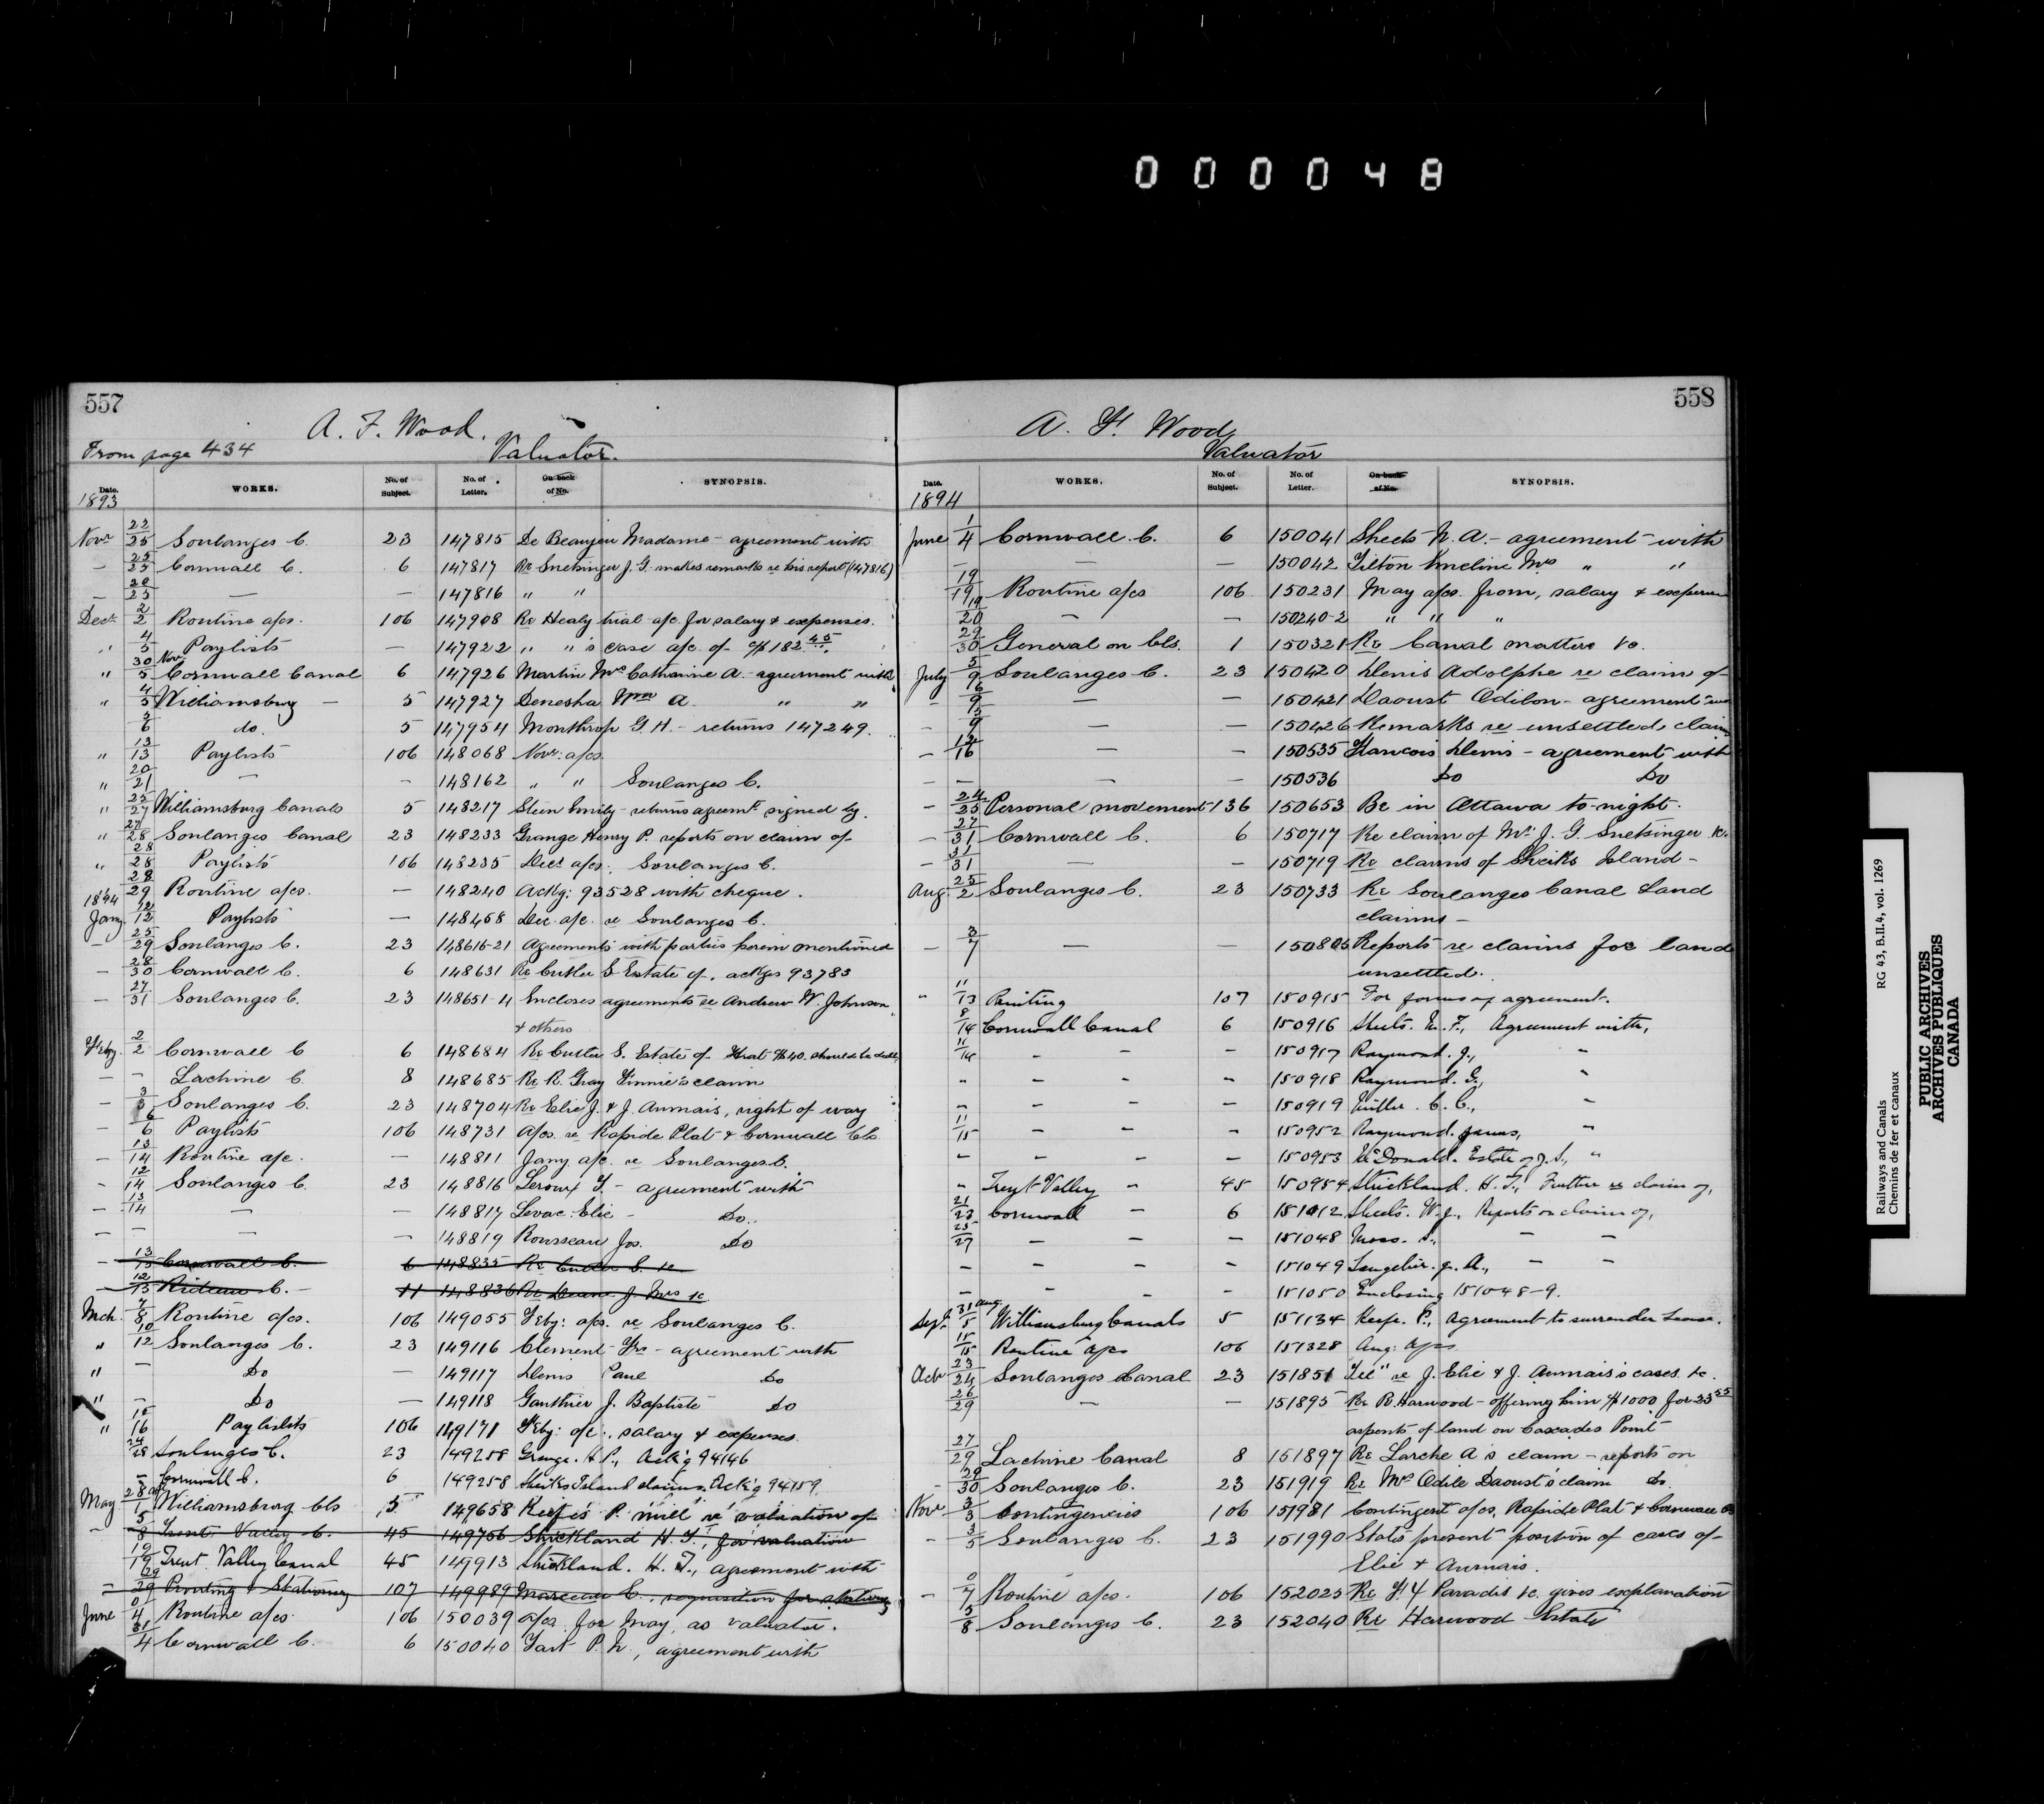 000048
557
A. F. Wood.
From page 434
Valuator.
Date. WORKS. No. of Subject. No. of Letter. On back of No. SYNOPSIS.
1893
Novr 22/25 Soulanges C. 23 147815 De Beaujeu Madame - agreement with
— 25/25 Cornwall C. 6 147817 Re Snetsinger J. G. makes remarks re his report (147816)
— 20/25 — — 147816 " "
Decr 2/2 Routine a/cs. 106 147908 Re Healy trial a/c for salary & expenses.
" 4/5 Paylists — 147922 " " 's case a/c. of $182.45.
" 30 Nov/5 Cornwall Canal 6 147926 Martin Mrs Catharine A. - agreement with
" 4/5 Williamsburg — 5 147927 Denesha Wm A. " "
2/6 do. 5 147954 Monthrop G. H. - returns 147249.
" 13/13 Paylists 106 148068 Novr. a/cs.
" 20/21 — — 148162 " " Soulanges C.
" 25/27 Williamsburg Canals 5 148217 Stein Emily - returns agreemt signed by.
" 27/28 Soulanges Canal 23 148233 Grange Henry P. reports on claim of
" 28/28 Paylists 106 148235 Decr a/cs. Soulanges C.
28/29 Routine a/cs. — 148240 Ackg: 93528 with cheque.
1894
Jany 12/12 Paylists — 148468 Dec. a/c. re Soulanges C.
— 25/29 Soulanges C. 23 148616-21 Agreements with parties herein mentioned
— 28/30 Cornwall C. 6 148631 Re Cutler S Estate of, ackgs 93783
— 27/31 Soulanges C. 23 148651-4 Encloses agreements re Andrew W. Johnson
& others
Feby. 2/2 Cornwall C 6 148684 Re Cutler S. Estate of - that $40. should be
— — Lachine C. 8 148685 Re R. Gray Finnie's claim
— 3/3 Soulanges C. 23 148704 Re Elie J. & J. Aumais, right of way
— 6/6 Paylists 106 148731 A/cs. re Rapide Plat & Cornwall Cls.
— 13/14 Routine a/c. — 148811 Jany. a/c. re Soulanges C.
— 12/14 Soulanges C. 23 148816 Leroux Y. - agreement with
— 13/14 — — 148817 Levac Elie - Do.
— — — — 148819 Rousseau Jos. Do
— 13/15 Cornwall C. 6 148835 Re Cutler S. &c.
— 12/15 Rideau C. — 11 148836 Re Deane J. Mrs &c
Mch. 7/8 Routine a/cs. 106 149055 Feby: a/cs. re Soulanges C.
" 10/12 Soulanges C. 23 149116 Clement Frs - agreement with
" — Do — 149117 Denis Paul Do
" — Do — 149118 Gauthier J. Baptiste Do
" 15/16 Paylists 106 149171 Feby: a/c:, salary & expenses.
24/28 Soulanges C. 23 149258 Grange. H. P., Ack'g 94146
— Cornwall C. 6 149258 Sheiks Island claims. Ack'g 94159.
May 28 ap/1 Williamsburg Cls 5 149658 Keef's P. mill re valuation of
— 5/8 Trent Valley C. 45 149756 Strickland H. F., for valuation
19/19 Trent Valley Canal 45 149913 Strickland. H. F., agreement with
— 29/29 Printing & Stationery 107 149989 Marceau E., requisition for stationery
June 4 Routine a/cs. 106 150039 A/cs. for May, as valuator.
31/4 Cornwall C. 6 150040 Tait P. N., agreement with
558
A. F. Wood
Valuator
Date. WORKS. No. of Subject. No. of Letter. On back of No. SYNOPSIS.
1894
June 1/4 Cornwall C. 6 150041 Sheets N. A. - agreement with
— — — 150042 Tilton Emeline Mrs " "
19/19 Routine a/cs 106 150231 May a/cs. from, salary & expenses
19/20 — — 150240-2 " " "
29/30 General on Cls. 1 150321 Re Canal matters &c.
July 5/9 Soulanges C. 23 150420 Denis Adolphe re claim of
— 6/9 — — 150421 Daoust Odilon - agreement
— 15/9 — — 150426 Remarks re unsettled claims
— 12/16 — — 150535 Francois Denis - agreement with
— — — — 150536 Do Do
— 24/25 Personal movement 136 150653 Be in Ottawa to-night.
— 27/31 Cornwall C. 6 150717 Re claim of Mr. J. G. Snetsinger &c.
— 31/31 — — 150719 Re claims of Sheiks Island -
Aug. 25/2 Soulanges C. 23 150733 Re Soulanges Canal Land
claims -
— 3/7 — — 150805 Reports re claims for land
unsettled.
" 11/13 Printing 107 150915 For forms of agreement.
8/14 Cornwall Canal 6 150916 Sheets. E. F., Agreement with,
11/14 — — — 150917 Raymond. J., "
" — — — 150918 Raymond. G., "
" — — — 150919 Miller. C. C., "
11/15 — — — 150952 Raymond. James, "
" — — — 150953 McDonald. Estate of J. S., "
" Trent Valley " 45 150954 Strickland. H. F., Further re claim of,
21/23 Cornwall — 6 151012 Sheets. W. J., Reports on claim of,
25/27 — — — 151048 Moss. S., — —
— — — — 151049 Langelier. J. A., — —
— — — — 151050 Enclosing 151048-9.
Sept. 31 Aug/5 Williamsburg Canals 5 151134 Keefe. P., Agreement to surrender Lease.
15/15 Routine a/cs 106 151328 Aug: a/cs
Octr 23/24 Soulanges Canal 23 151851 Tel" re J. Elie & J. Aumais's cases &c.
26/29 — — 151895 Re R. Harwood - offering him $1000 for 23 55
arpents of land on Cascades Point
27/29 Lachine Canal 8 151897 Re Larche A's claim - reports on
— 29/30 Soulanges C. 23 151919 Re Mrs Odile Daoust's claim Do.
Nov 3/3 Contingencies 106 151981 Contingent a/cs. Rapide Plat & Cornwall Cs
— 3/5 Soulanges C. 23 151990 States present position of cases of
Elie & Aumais.
— 7 Routine a/cs. 106 152023 Re F. Y. Paradis &c. gives explanation
5/8 Soulanges C. 23 152040 Re Harwood Estate
Railways and Canals RG 43, B.II.4, vol. 1269
Chemins de fer et canaux
PUBLIC ARCHIVES
ARCHIVES PUBLIQUES
CANADA